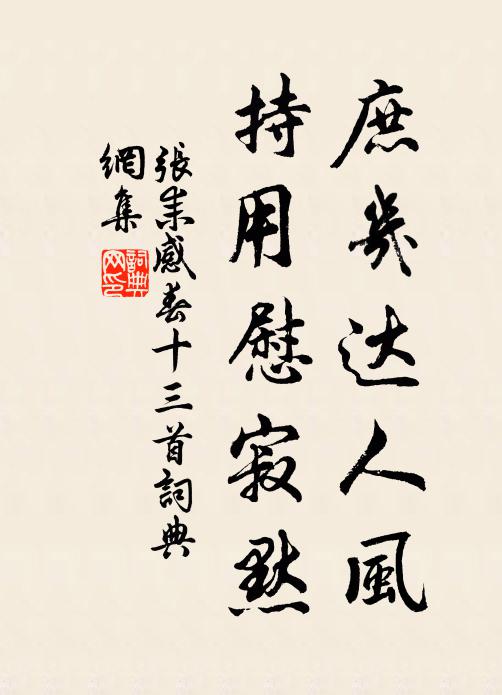 庶幾达人風
持用慰寂默
張耒感春十三首詞典
網集
詞典網印